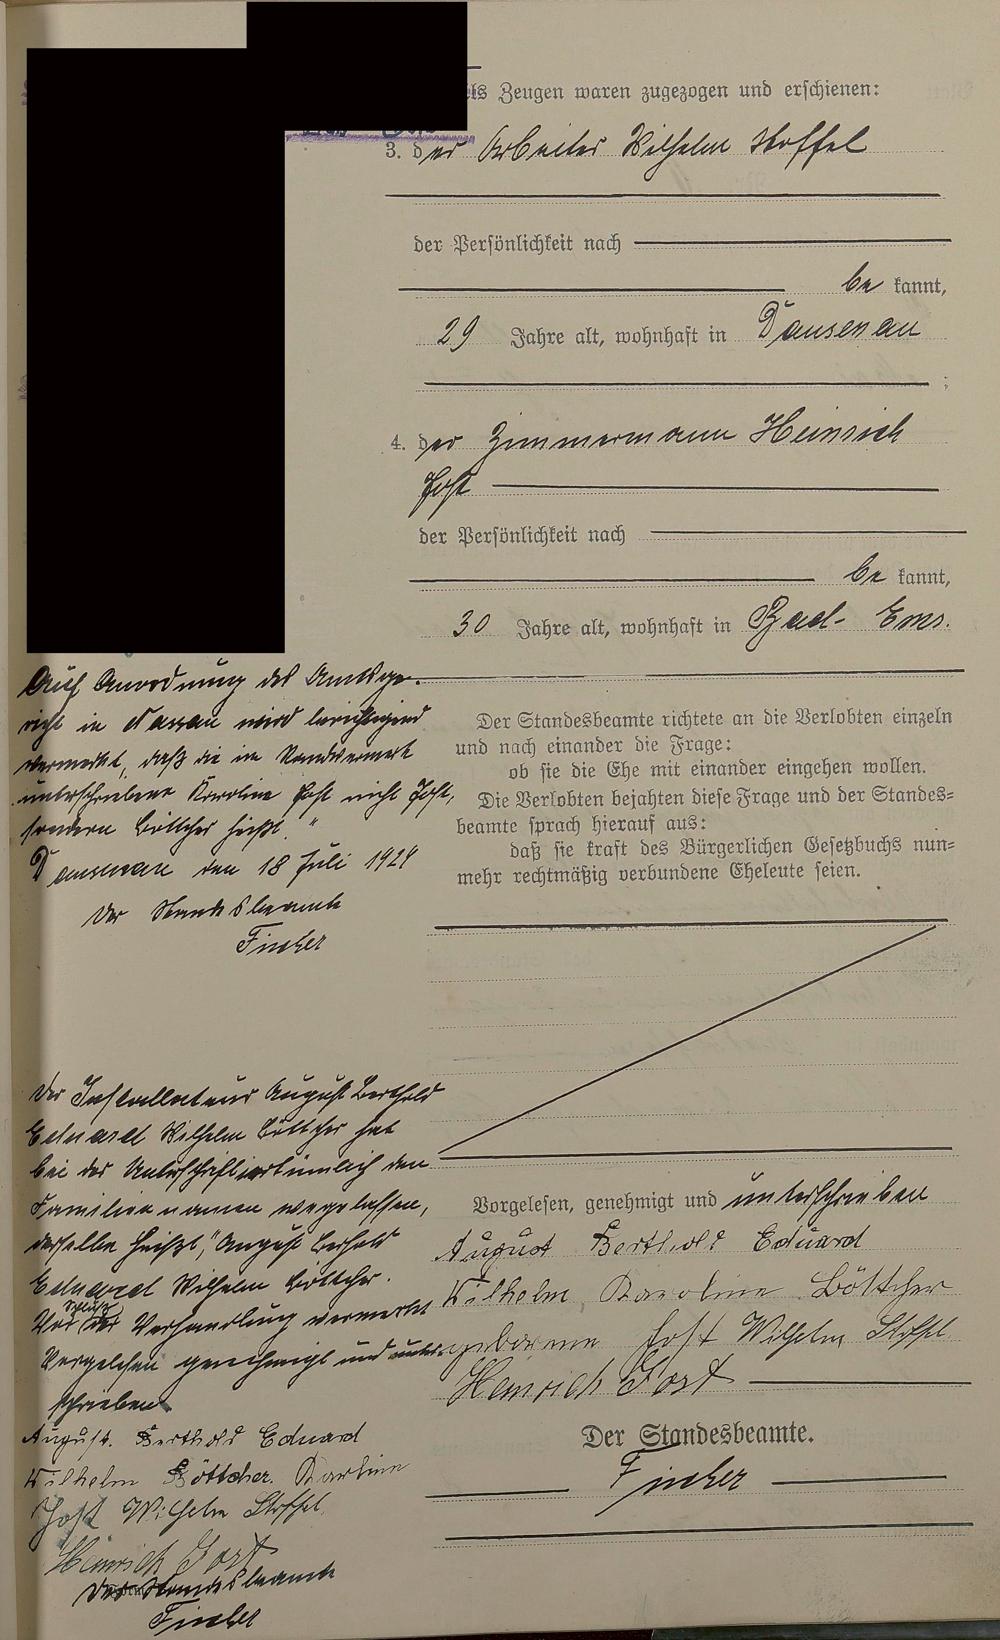 als Zeugen waren zugezogen und erschienen:
3. der Arbeiter Wilhelm Stoffel
der Persönlichkeit nach
be kannt,
29 Jahre alt, wohnhaft in Dausenau
;
4. der Zimmermann Heinrich
Jost
der Persönlichkeit nach
be kannt,
30 Jahre alt, wohnhaft in Bad-Ems.
Der Standesbeamte richtete an die Verlobten einzeln
und nach einander die Frage:
ob sie die Ehe mit einander eingehen wollen.
Die Verlobten bejahten diese Frage und der Standes=
beamte sprach hierauf aus:
daß sie kraft des Bürgerlichen Gesetzbuchs nun=
mehr rechtmäßig verbundene Eheleute seien.
Vorgelesen, genehmigt und unterschrieben
August Berthold Eduard
Wilhelm, Karoline Böttcher
geborene Jost Wilhelm Stoffel
Heinrich Jost
Der Standesbeamte.
Fischer
Auf Anordnung des Amtsge-
richt in Nassau wird berichtigend
vermerkt, daß die im Randvermerk
unterschriebene Karoline Jost nicht Jost,
sondern Böttcher heißt."
Dausenau den 18 Juli 1924
Der Standesbeamte
Fischer
Der Installateur August Berthold
Eduard Wilhelm Böttcher hat
bei der Unterschrift irrtümlich den
Familiennamen wegelassen,
derselbe heißt, "August Berthold
Eduard Wilhelm Böttcher.
Vor Schluß der Verhandlung vermerkt
Vorgelesen genehmigt und unter-
schrieben
August. Berthold Eduard
Wilhelm Böttcher. Karline
Jost Wilhelm Stoffel
Heinrich Jost
Der Standesbeamte
Fischer